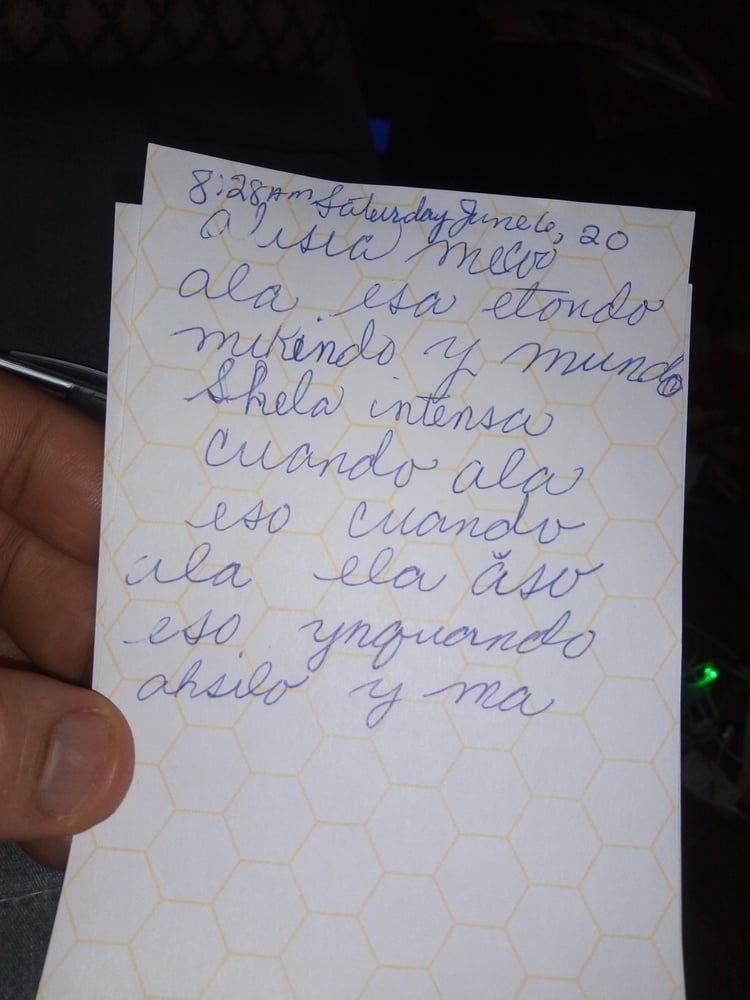 8:28AM Saturday June 6, 20
ala esa etondo
mikindo y mundo
Shela intensa
cuando ala
eso cuando
ala ela ăso
eso ynquando
ahsilo y ma